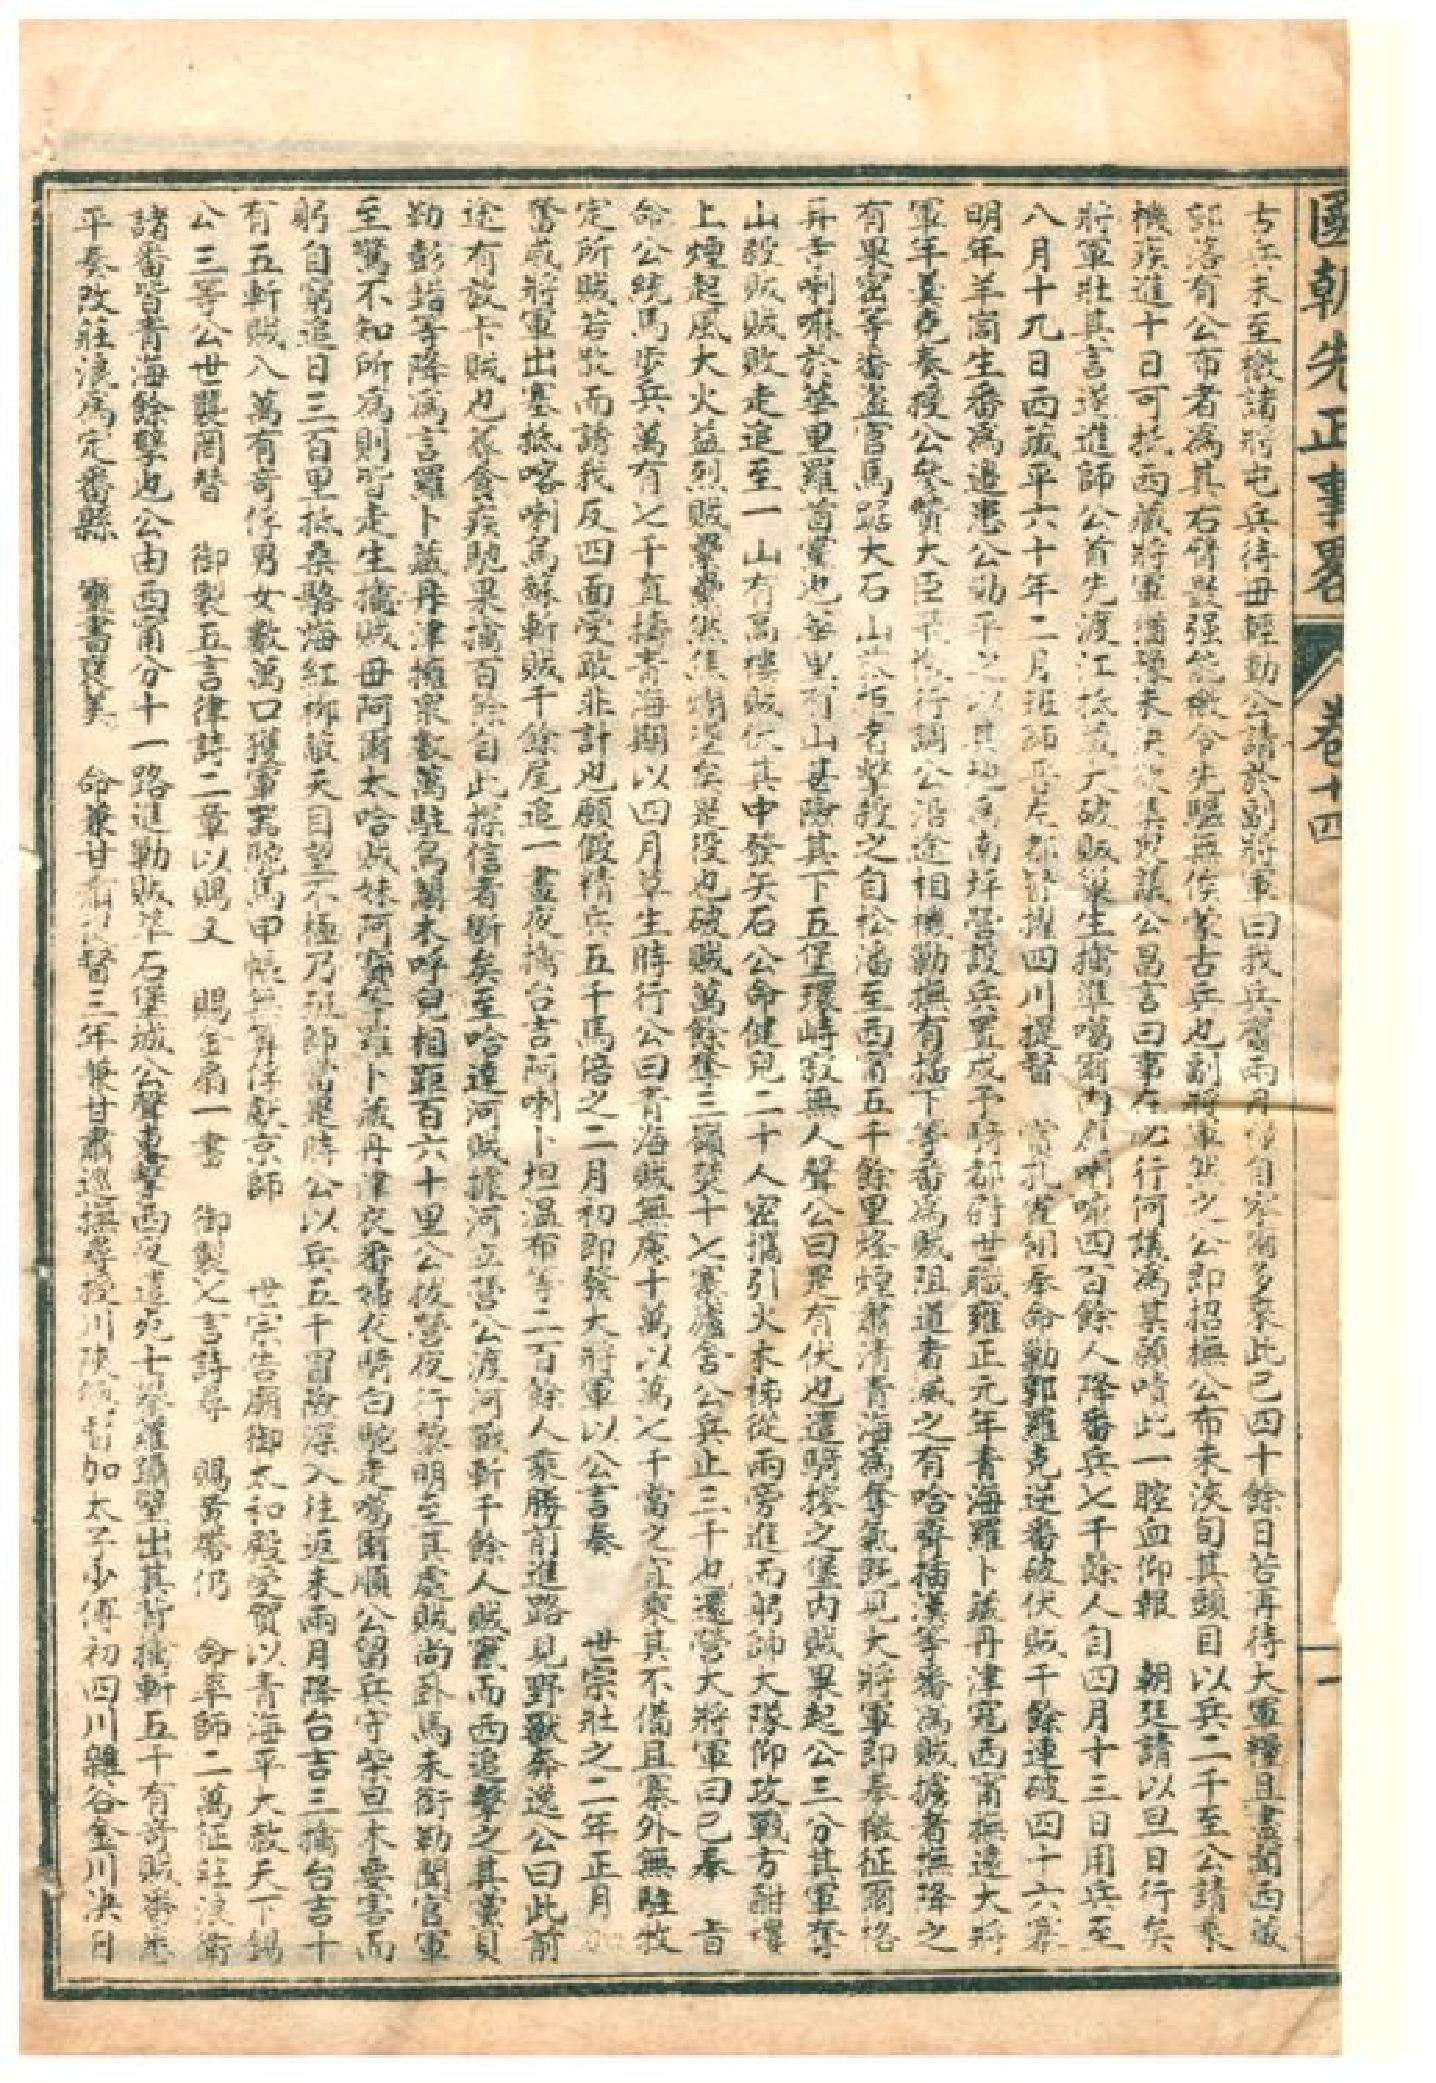 國朝先正事畧 卷十四 一
古兵未至檄諸將屯兵待毋輕動公請於副將軍曰我兵齎兩月糧自察木多來此已四十餘日若再待大軍糧且盡聞西藏
部落有公布者爲其右臂最强能檄令先驅無俟蒙古兵也副將軍然之公即招撫公布未浹旬其頭目以兵二千至公請乘
機疾進十日可抵西藏將軍猶豫未決欲集衆議公昌言曰事在必行何議爲某願噴此一腔血仰報 朝廷請以旦日行矣
將軍壯其言遂進師公首先渡江抵藏大破賊巢生擒準噶爾內應喇嘛四百餘人降番兵七千餘人自四月十三日用兵至
八月十九日西藏平六十年二月班師晉左都督擢四川提督 賞孔雀翎奉命勦郭羅克逆番破伏賊千餘連破四十六寨
明年羊峝生番爲邊患公勦平之以其地爲南坪營設兵置戍予騎都尉世職雍正元年青海羅卜藏丹津寇西甯撫遠大將
軍年羹堯奏授公參贊大臣 行調公沿途相機勦撫有插下等番爲賊阻道者滅之有哈齊插漢等番爲賊擄者撫降之
有果密等番盜官馬踞大石山 者擊殺之自松潘至西甯五千餘里烽煙肅清青海爲奪氣旣見大將軍即奉檄征爾格
弄寺喇嘛於華里羅茜黨也華里有山甚險其下五堡環峙寂無人聲公曰是有伏也遣騎搜之堡內賊果起公三分其軍奪
山殺賊賊敗走追至一山有高樓賊伏其中發矢石公命健兒二十人密攜引火木梯從兩旁進而躬帥大隊仰攻戰方酣樓
上煙起風大火益烈賊纍纍然焦爛墜矣是役也破賊萬餘奪三嶺焚十七寨廬舍公兵止三千也還營大將軍曰已奉 旨
命公統馬步兵萬有七千直擣青海期以四月草生時行公曰青海賊無慮十萬以萬七千當之宜乘其不備且塞外無駐牧
定所賊若散而誘我反四面受敵非計也願假精兵五千馬倍之二月初即發大將軍以公言奏 世宗壯之二年正月加
奮威將軍出塞抵喀喇烏蘇斬賊千餘尾追一晝夜擒台吉阿喇卜坦溫布等二百餘人乘勝前進路見野獸奔逸公曰此前
途有放卡賊也蓐食疾馳果擒百餘自此探信者斷矣至哈達河賊據河立營公渡河 斬千餘人賊竄而西追擊之其黨貝
勒彭措等降爲言羅卜藏丹津擁衆數萬駐烏蘭木呼皃相距百六十里公拔營夜行黎明至其處賊尚臥馬未銜勒聞官軍
至驚不知所爲則皆走生擒賊母阿爾太哈賊妹阿寶等羅卜藏丹津衣番婦衣騎白駝走噶爾順公留兵守柴旦木要害而
躬自窮追日三百里抵桑駱海紅柳蔽天目望不極乃班師當是時公以兵五千冒險深入往返未兩月降台吉三擒台吉十
有五斬賊八萬有奇俘男女數萬口獲軍器駝馬甲帳無算俘獻京師 世宗告廟御太和殿受賀以青海平大赦天下錫
公三等公世襲罔替 御製五言律詩二章以賜又 賜金扇一書 御製七言詩尋 賜黃帶仍 命率師二萬征莊浪衛
諸番皆青海餘孽也公由西甯分十一路進勦賊 石堡城公聲東擊西夜遣死士攀蘿躡壁出其背擒斬五千有奇賊番悉
平奏改莊浪爲定番縣 璽書褒美 命兼甘肅提督三年兼甘肅巡撫尋授川陝總督加太子少傅初四川雜谷金川沃日